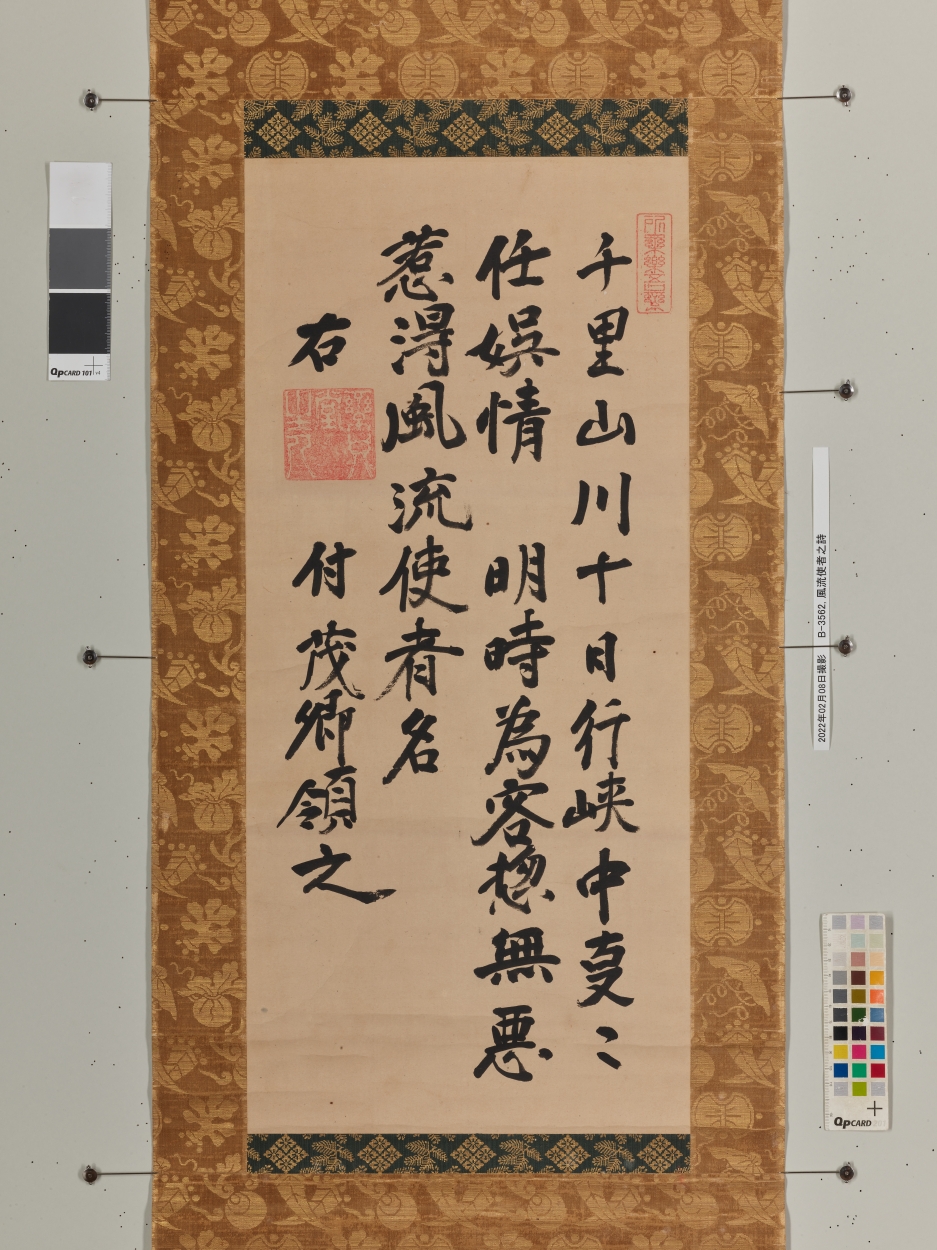 所樂樂吾樂
千里山川十日行峡中處〻
任娯情　明時為客惣無悪
惹得風流使者名
右　付茂卿領之
2022年02月08日撮影　B-3562, 風流使者之詩
QPCARD 101
QPCARD